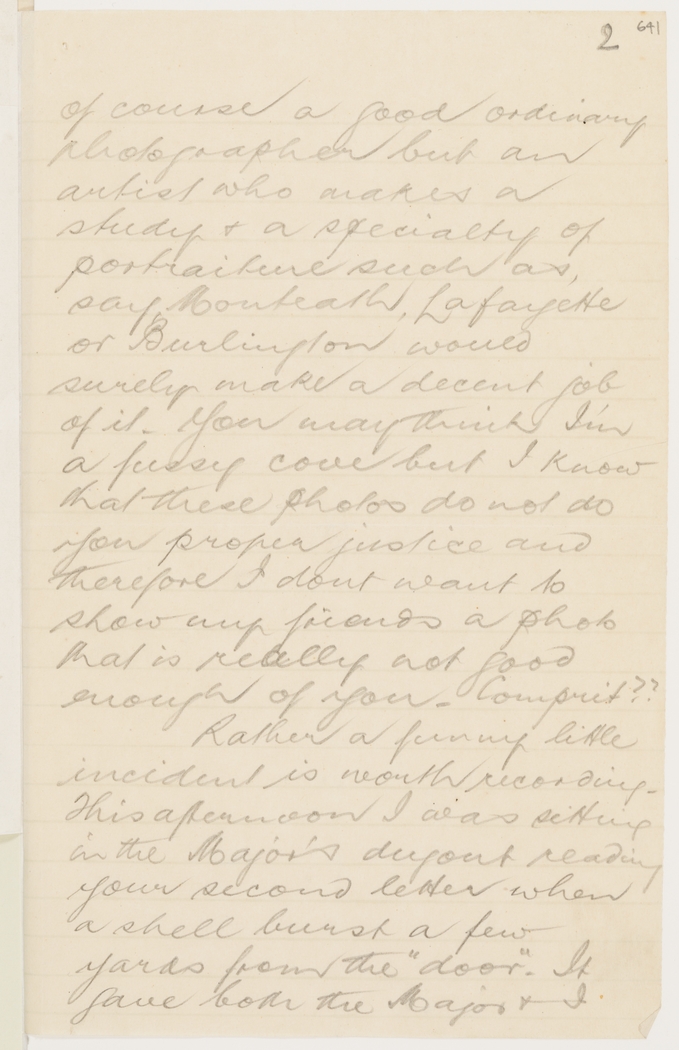 2 641
of course a good ordinary
photographer but an
artist who makes a
study & a specialty of
portraiture such as,
say, Monteath, Lafayette
or Burlington would
surely make a decent job
of it. You may think I'm
a fussy cove but I know
that these photos do not do
you proper justice and
therefore I dont want to
show my friends a photo
that is really not good
enough of you. Comprit??
Rather a funny little
incident is worth recording.
This afternoon I was sitting
in the Major's dugout reading
your second letter when
a shell burst a few
yards from the "door". It
gave both the Major & I